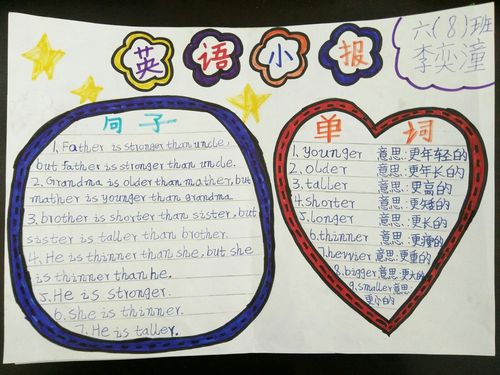 英语小报
六(8)班
李奕潼
句子
1. Father is stronger than uncle,
but father is stronger than uncle.
2. Grandma is older than mather, but
mather is younger than grandma.
3. brother is shorter than sister, but
sister is taller than brother.
4. He is thinner than she, but she
is thinner than he.
5. He is stronger.
6. She is thinner.
7. He is taller.
单词
1. Younger 意思:更年轻的
2. older 意思:更年长的
3. taller 意思:更高的
4. shorter 意思:更矮的
5. longer 意思:更长的
6. thinner 意思:更瘦的
7. hevvier 意思:更重的
8. bigger 意思:更大的
9. smaller 意思:
更小的